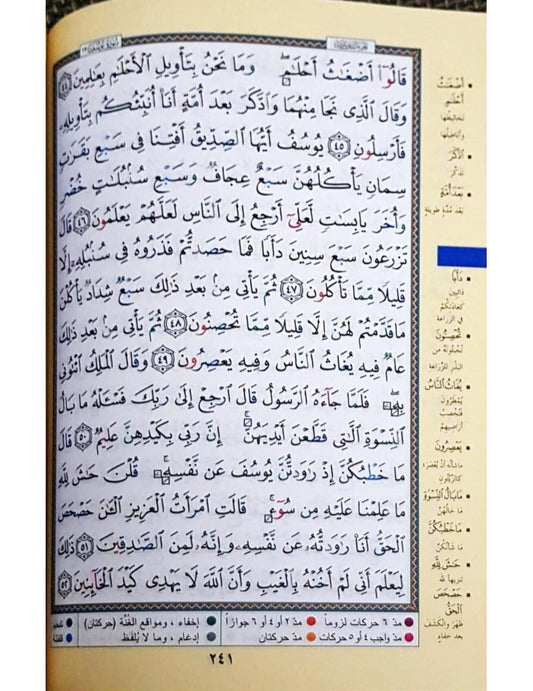 سورة يوسف ١٢
قَالُوٓا۟ أَضْغَٰثُ أَحْلَٰمٍۢ ۖ وَمَا نَحْنُ بِتَأْوِيلِ ٱلْأَحْلَٰمِ بِعَٰلِمِينَ ٤٤
وَقَالَ ٱلَّذِى نَجَا مِنْهُمَا وَٱدَّكَرَ بَعْدَ أُمَّةٍ أَنَا۠ أُنَبِّئُكُم بِتَأْوِيلِهِۦ
فَأَرْسِلُونِ ٤٥ يُوسُفُ أَيُّهَا ٱلصِّدِّيقُ أَفْتِنَا فِى سَبْعِ بَقَرَٰتٍۢ
سِمَانٍۢ يَأْكُلُهُنَّ سَبْعٌ عِجَافٌۭ وَسَبْعِ سُنۢبُلَٰتٍ خُضْرٍۢ
وَأُخَرَ يَابِسَٰتٍۢ لَّعَلِّىٓ أَرْجِعُ إِلَى ٱلنَّاسِ لَعَلَّهُمْ يَعْلَمُونَ ٤٦ قَالَ
تَزْرَعُونَ سَبْعَ سِنِينَ دَأَبًۭا فَمَا حَصَدتُّمْ فَذَرُوهُ فِى سُنۢبُلِهِۦٓ إِلَّا
قَلِيلًۭا مِّمَّا تَأْكُلُونَ ٤٧ ثُمَّ يَأْتِى مِنۢ بَعْدِ ذَٰلِكَ سَبْعٌۭ شِدَادٌۭ يَأْكُلْنَ
مَا قَدَّمْتُمْ لَهُنَّ إِلَّا قَلِيلًۭا مِّمَّا تُحْصِنُونَ ٤٨ ثُمَّ يَأْتِى مِنۢ بَعْدِ ذَٰلِكَ
عَامٌۭ فِيهِ يُغَاثُ ٱلنَّاسُ وَفِيهِ يَعْصِرُونَ ٤٩ وَقَالَ ٱلْمَلِكُ ٱئْتُونِى
بِهِۦ ۖ فَلَمَّا جَآءَهُ ٱلرَّسُولُ قَالَ ٱرْجِعْ إِلَىٰ رَبِّكَ فَسْـَٔلْهُ مَا بَالُ
ٱلنِّسْوَةِ ٱلَّٰتِى قَطَّعْنَ أَيْدِيَهُنَّ ۚ إِنَّ رَبِّى بِكَيْدِهِنَّ عَلِيمٌۭ ٥٠ قَالَ
مَا خَطْبُكُنَّ إِذْ رَٰوَدتُّنَّ يُوسُفَ عَن نَّفْسِهِۦ ۚ قُلْنَ حَٰشَ لِلَّهِ
مَا عَلِمْنَا عَلَيْهِ مِن سُوٓءٍۢ ۚ قَالَتِ ٱمْرَأَتُ ٱلْعَزِيزِ ٱلْـَٰٔنَ حَصْحَصَ
ٱلْحَقُّ أَنَا۠ رَٰوَدتُّهُۥ عَن نَّفْسِهِۦ وَإِنَّهُۥ لَمِنَ ٱلصَّٰدِقِينَ ٥١ ذَٰلِكَ
لِيَعْلَمَ أَنِّى لَمْ أَخُنْهُ بِٱلْغَيْبِ وَأَنَّ ٱللَّهَ لَا يَهْدِى كَيْدَ ٱلْخَآئِنِينَ ٥٢
أَضْغَٰثُ
أَحْلَٰمٍ
تخاليطها
وأباطيلها
ٱدَّكَرَ
تذكّر
بَعْدَ أُمَّةٍ
بعد مدّة طويلة
دَأَبًا
دائبين
كعادتكم
في الزراعة
تُحْصِنُونَ
تخبئونه من
البذر للزراعة
يُغَاثُ ٱلنَّاسُ
يُمطرون
فتخصب
أراضيهم
يَعْصِرُونَ
ما شأنه أن يُعصر؛
كالزيتون
مَا بَالُ ٱلنِّسْوَةِ
ما حالهنّ
مَا خَطْبُكُنَّ
ما شأنكنّ
حَٰشَ لِلَّهِ
تنزيها لله
حَصْحَصَ
ٱلْحَقُّ
ظهر وانكشف
بعد خفاء
مدّ ٦ حركات لزوماً مدّ ٢ أو ٤ أو ٦ جوازاً إخفاء ، ومواقع الغُنَّة (حركتان)
مدّ واجب ٤ أو ٥ حركات مدّ حركتان إدغام ، وما لا يُلفَظ قلقلة
٢٤١